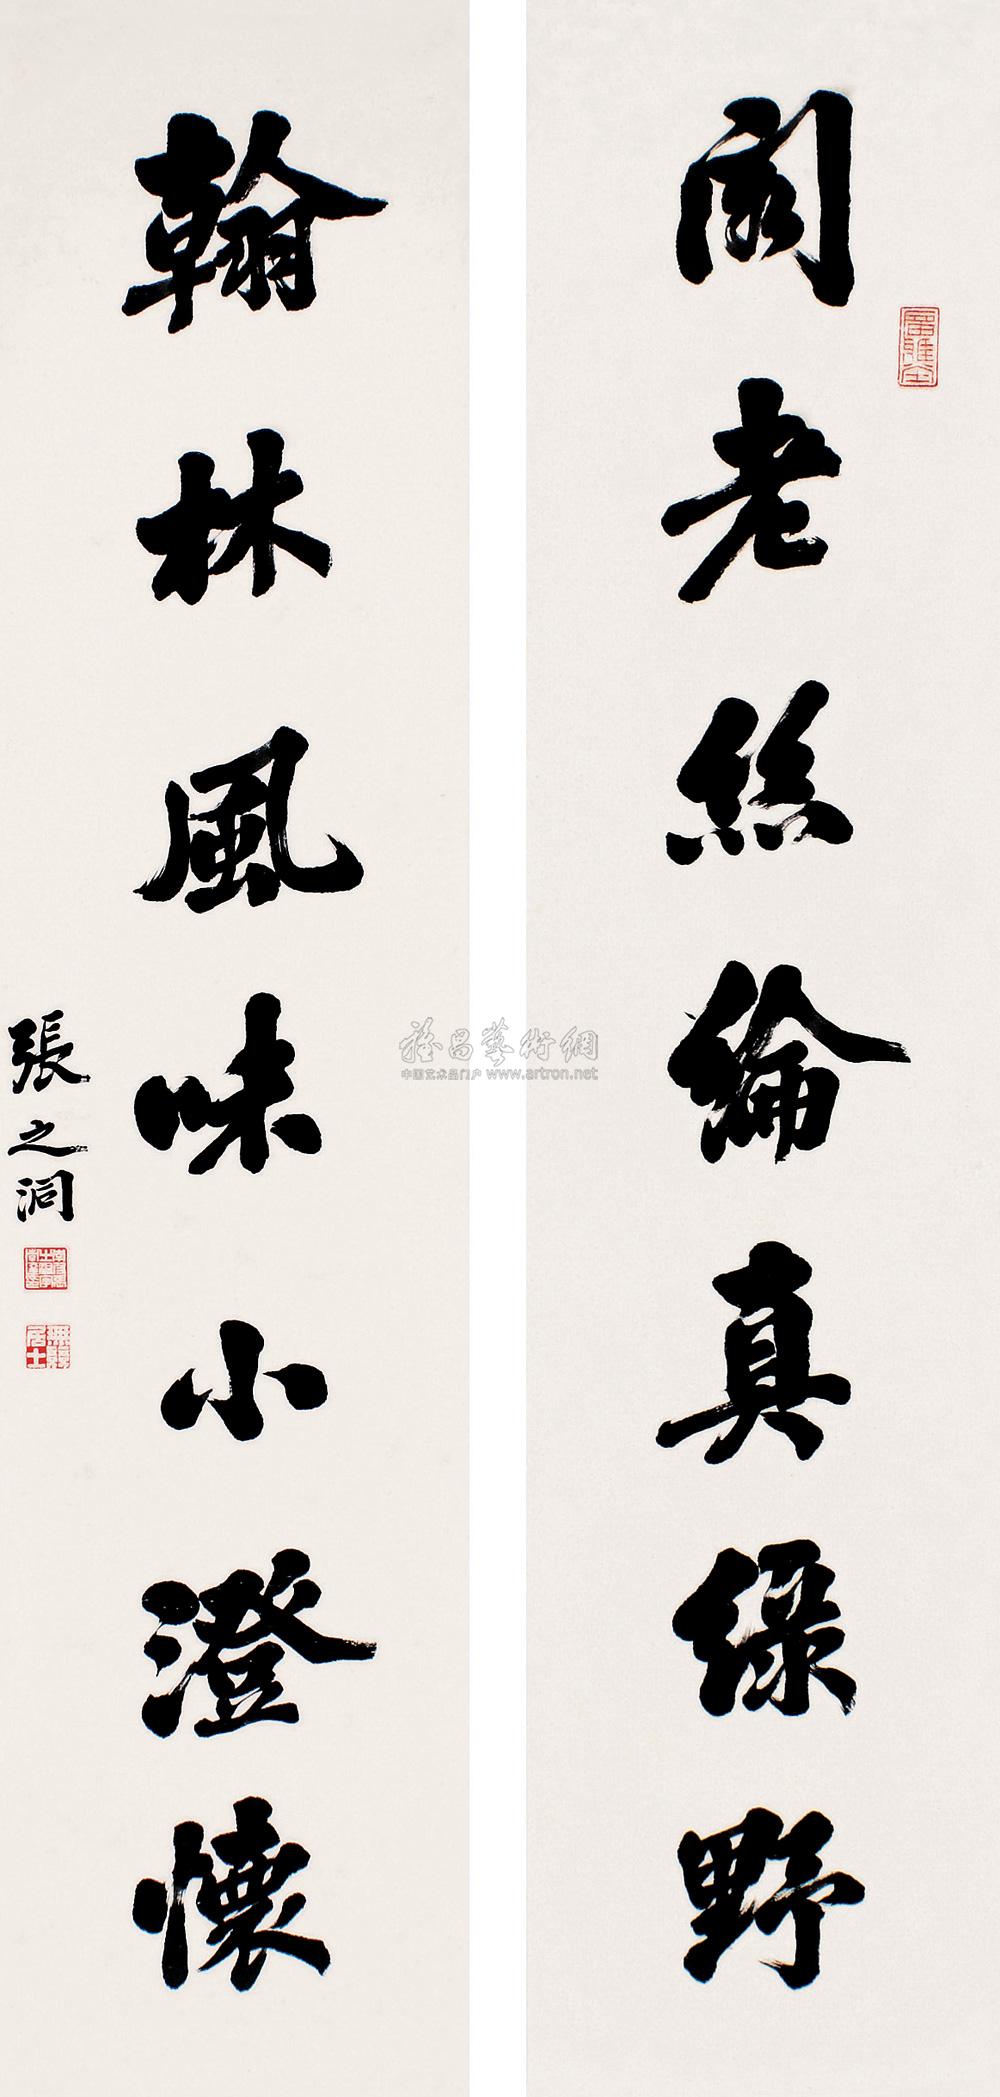 閣老絲綸真綠野
翰林風味小澄懷
張之洞
無競居士
雅昌藝術網
中国艺术品门户 www.artron.net